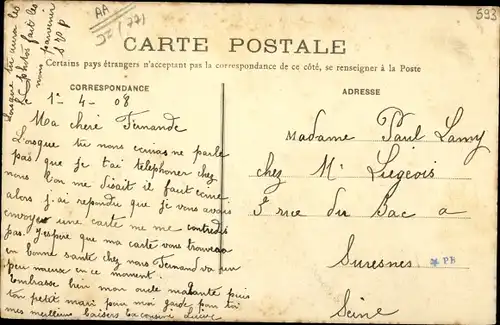 AA
JZ (77)
593
CARTE POSTALE
Certains pays étrangers n'acceptant pas la correspondance de ce côté, se renseigner à la Poste
CORRESPONDANCE
ADRESSE
Lorsque tu auras les
photos fait les
nous parvenir
S V P
Le 1 - 4 - 08
Ma cheré Fernande
Lorsque tu nous ecriras ne parle
pas que je t'ai téléphoner chez
nous l'on me disait il faut ecrire
alors j'ai repondu que je vous avais
envoyer une carte ne me contredis
pas. J'espère que ma carte vous trouveras
en bonne santé chez nous Fernand va un
peu mieux en ce moment.
Embrasse bien mon oncle ma tante puis
ton petit mari pour moi garde pour toi
mes meilleurs baisers ta cousine Lucie
Madame Paul Lamy
chez Mr Liegeois
5 rue du Bac a
Suresnes
* PB
Seine